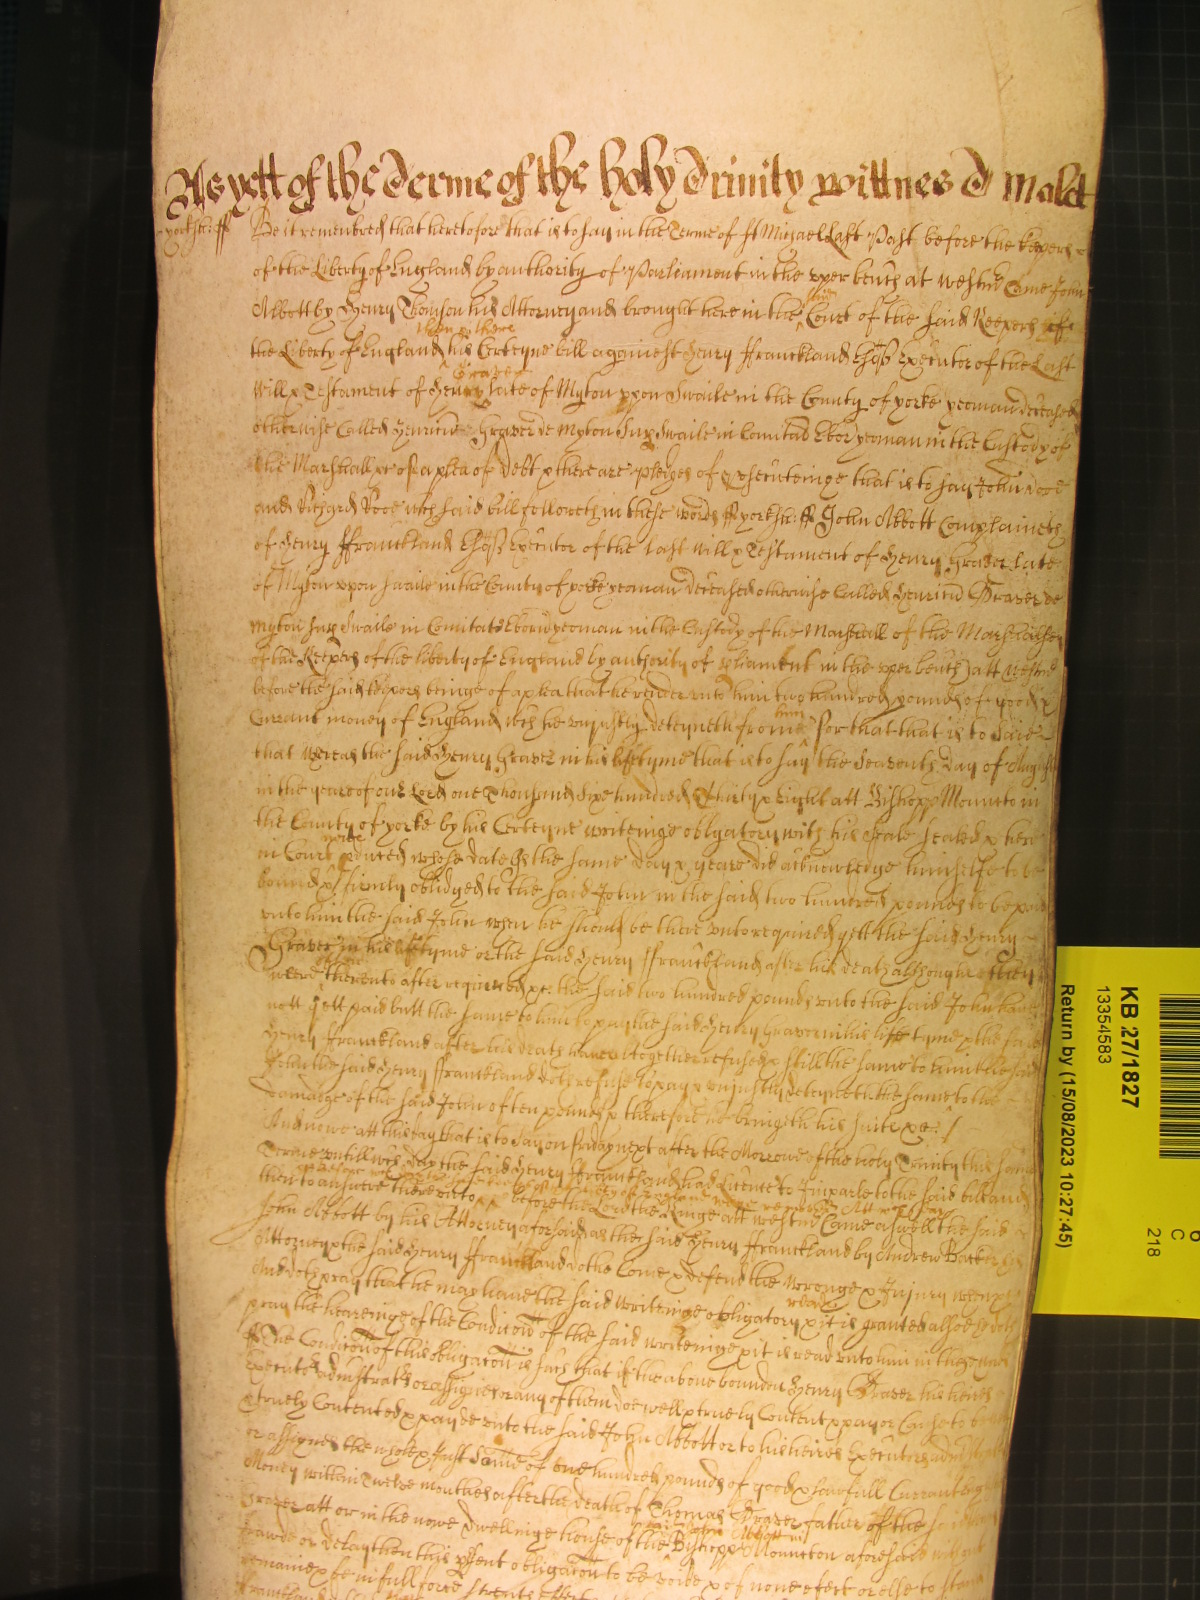 As yett of the Terme of the holy Trinity wittnes T Malet
Yorksh: ss Be it remembred that heretofore that is to say in the Terme of St Michaell last Past before the keepers
of the Liberty of England by authority of Parliament in the vper bench at Westm̃ Came John
Abbott by Henry Thomson his Attorney and brought here in the then Court of the said Keepers of
the Liberty of England then & there his Certeyne bill against Henry ffranckland Esqr Executor of the Last
will & Testament of Henry Graver late of Myton vpon Swaile in the County of yorke yeoman deceased
otherwise Called Henricũ Graver de Myton Sup Swaile in Comitat Ebor yeoman in the Custody of
the Marshall &c of a plea of debt & there are pledges of prosecuteinge that is to say John Doo
and Richard Roo wch said bill followeth in these words ss yorksh: ss John Abbott Complaineth
of Henry ffranckland Esqr Executor of the last will & Testament of Henry Graver late
of Myton vpon Swaile in the County of yorke yeoman deceased otherwise Called Henricũ Graver de
Myton Sup Swaile in Comitat Ebor yeoman in the Custody of the Marshall of the Marshalsey
of the Keepers of the liberty of England by authority of pliament in the vper bench att Westm̃
before the said keepers beinge of a plea that he render vnto him two hundred pounds of good &
Currant money of England wch he vniustly deteyneth from him for that that is to saie
that whereas the said Henry Graver in his lifetyme that is to say the Seaventh day of August
in the yeare of our Lord one Thousand Sixe hundred Thirty & Eight att Bishopp Mounton in
the County of yorke by his Certeyne writeinge obligatory with his Seale Sealed & here
in Court pduced whose date is the same day & yeare did acknowledge himselfe to be
bound & firmly obliidged to the said John in the said two hundred pounds to be paid
vnto him the said John when he should be there vnto required yett the said Henry
Graver in his lifetyme or the said Henry ffranckland after his death although often
were therevnto after required &c the said two hundred pounds vnto the said John have
nott yett paid butt the same to him to pay the said Henry Graver in his life tyme & the said
Henry ffranckland after his death have altogether refused & still the same to him the said
John the said Henry ffranckland doth refuse to pay & vniustly deteyneth the same to the
damadge of the said John of ten pounds & therefore he bringeth his suite &c
And nowe att this day that is to say on friday next after the Morrow of the holy Trinity this same
Terme vntill wch day the said Henry ffranckland had Licence to Imparle to the said bill and
then to answere therevnto &c before the Lord the Kinge att Westm̃ Came aswell the said
John Abbott by his Attorney aforesaid as the said Henry ffranckland by Andrew Barker his
Attorney & the said Henry ffranckland doth Come & defend the Wronge & Iniury when &c
And doth pray that he may have the said writeinge obligatory read & it is granted alsoe he doth
pray the heareinge of the Condicon of the said writeinge & it is read vnto him in these words
ss The Condicon of this obligacon is such that if the above bounden Henry Graver his heires
Executrs administratrs or assignes or any of them doe well & truely Content & pay or Cause to be
truely Contented & payde vnto the said John Abbott or to his heires Executors
or assignes the whole & Just Sume of one hundred pounds of good & lawfull Currant English
Money within Twelve monthes after the death of Thomas Graver father of the said Henry
Graver att or in the nowe dwellinge house of the said John Abbott in Bishopp Mounton aforesaid without
fraude or delay then this psent obligacon to be voide & of none efect or else to stand
remaine & be in full force Strenth effect
KB 27/1827
13354583
Return by (15/08/2023 10:27:45)
C
218